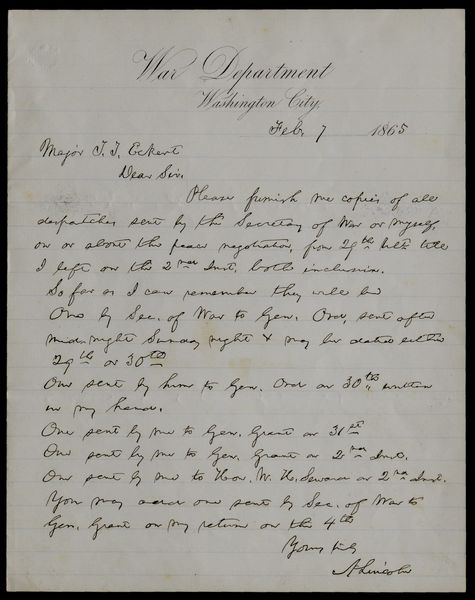 War Department
Washington City,
Feb. 7 1865
Major T. T. Eckert
Dear Sir.
Please furnish me copies of all
despatches sent by the Secretary of War or myself,
on or about the peace negotiation, from 29th ult. till
I left on the 2nd Inst. both inclusive.
So far as I can remember they will be
One by Sec. of War to Gen. Ord, sent after
mid-night Sunday night & may be dated either
29th or 30th
One sent by him to Gen. Ord on 30th, written
in my hand.
One sent by me to Gen. Grant on 31st
One sent by me to Gen. Grant on 2nd Inst.
One sent by me to Hon. W. H. Seward on 2nd Inst.
You may add one sent by Sec. of War to
Gen. Grant on my return on the 4th
Yours truly
A Lincoln